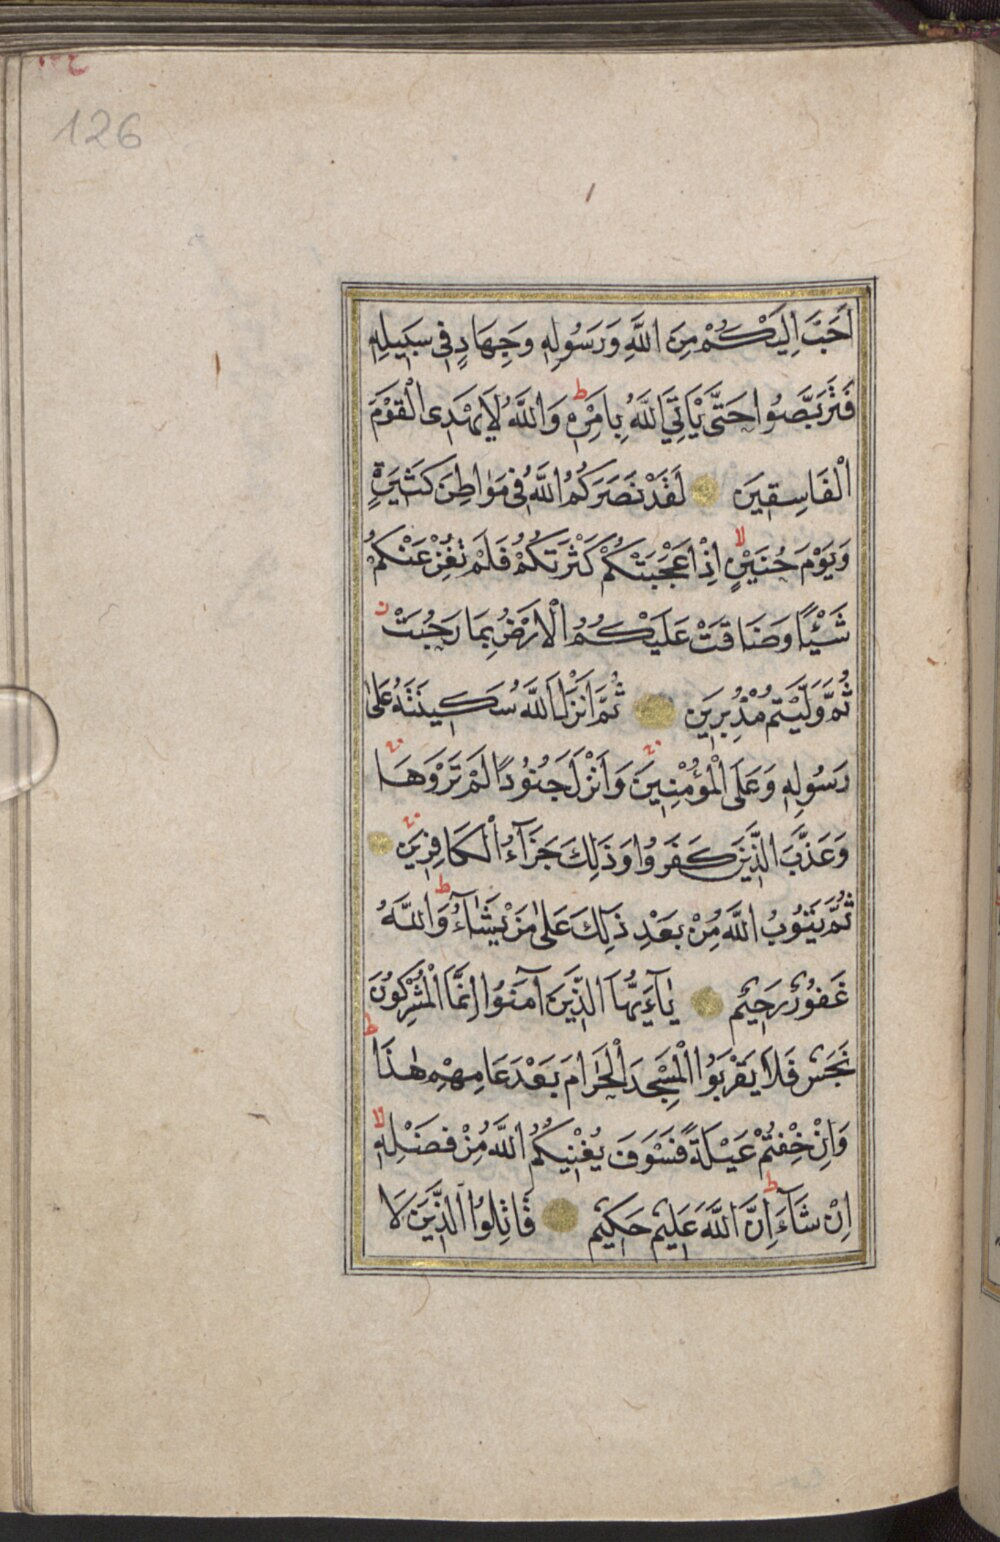 126
اَحَبَّ اِلَيْكُمْ مِنَ اللَّهِ وَرَسُولِهِ وَجِهَادٍ فِى سَبِيلِهِ
فَتَرَبَّصُوا حَتَّى يَاْتِيَ اللَّهُ بِاَمْرِهِ ط وَاللَّهُ لَا يَهْدِى الْقَوْمَ
الْفَاسِقِينَ لَقَدْ نَصَرَكُمُ اللَّهُ فِى مَوَاطِنَ كَثِيرَةٍ
وَيَوْمَ حُنَيْنٍ لا اِذْ اَعْجَبَتْكُمْ كَثْرَتُكُمْ فَلَمْ تُغْنِ عَنْكُمْ
شَيْئًا وَضَاقَتْ عَلَيْكُمُ الْاَرْضُ بِمَا رَحُبَتْ
ثُمَّ وَلَّيْتُمْ مُدْبِرِينَ ثُمَّ اَنْزَلَ اللَّهُ سَكِينَتَهُ عَلَى
رَسُولِهِ وَعَلَى الْمُؤْمِنِينَ وَاَنْزَلَ جُنُودًا لَمْ تَرَوْهَا
وَعَذَّبَ الَّذِينَ كَفَرُوا وَذَلِكَ جَزَآءُ الْكَافِرِينَ
ثُمَّ يَتُوبُ اللَّهُ مِنْ بَعْدِ ذَلِكَ عَلَى مَنْ يَشَآءُ ط وَاللَّهُ
غَفُورٌ رَحِيمٌ يَآءَيُّهَا الَّذِينَ آمَنُوا اِنَّمَا الْمُشْرِكُونَ
نَجَسٌ فَلَا يَقْرَبُوا الْمَسْجِدَ الْحَرَامَ بَعْدَ عَامِهِمْ هٰذَا ط
وَاِنْ خِفْتُمْ عَيْلَةً فَسَوْفَ يُغْنِيكُمُ اللَّهُ مِنْ فَضْلِهِ لا
اِنْ شَآءَ ط اِنَّ اللَّهَ عَلِيمٌ حَكِيمٌ قَاتِلُوا الَّذِينَ لَا